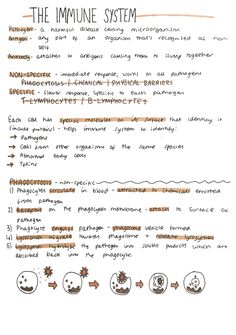 THE IMMUNE SYSTEM
Pathogen - a harmful disease causing microorganism
Antigen - any part of an organism that's recognised as non-
self
Antibody - attaches to antigens causing them to clump together
NON-SPECIFIC - immediate response, works on all pathogens
PHAGOCYTOSIS / CHEMICAL / PHYSICAL BARRIERS
SPECIFIC - slower response, specific to each pathogen
T-LYMPHOCYTES / B-LYMPHOCYTES
Each cell has specific molecules on its surface that identify it
(include proteins) - helps immune system to identify:
→ Pathogens
→ Cells from other organisms of the same species
→ Abnormal body cells
→ Toxins
PHAGOCYTOSIS - non-specific
1) Phagocytes circulate in blood - attracted to chemicals emitted
from pathogen
2) Receptors on the phagocytes membrane - attach to surface of
pathogen
3) Phagocyte engulfs pathogen - phagosome vesicle formed
4) Lysosomes migrate towards phagosome + release lysozymes
5) Lysozymes hydrolyse the pathogen into soluble products which are
absorbed back into the phagocyte